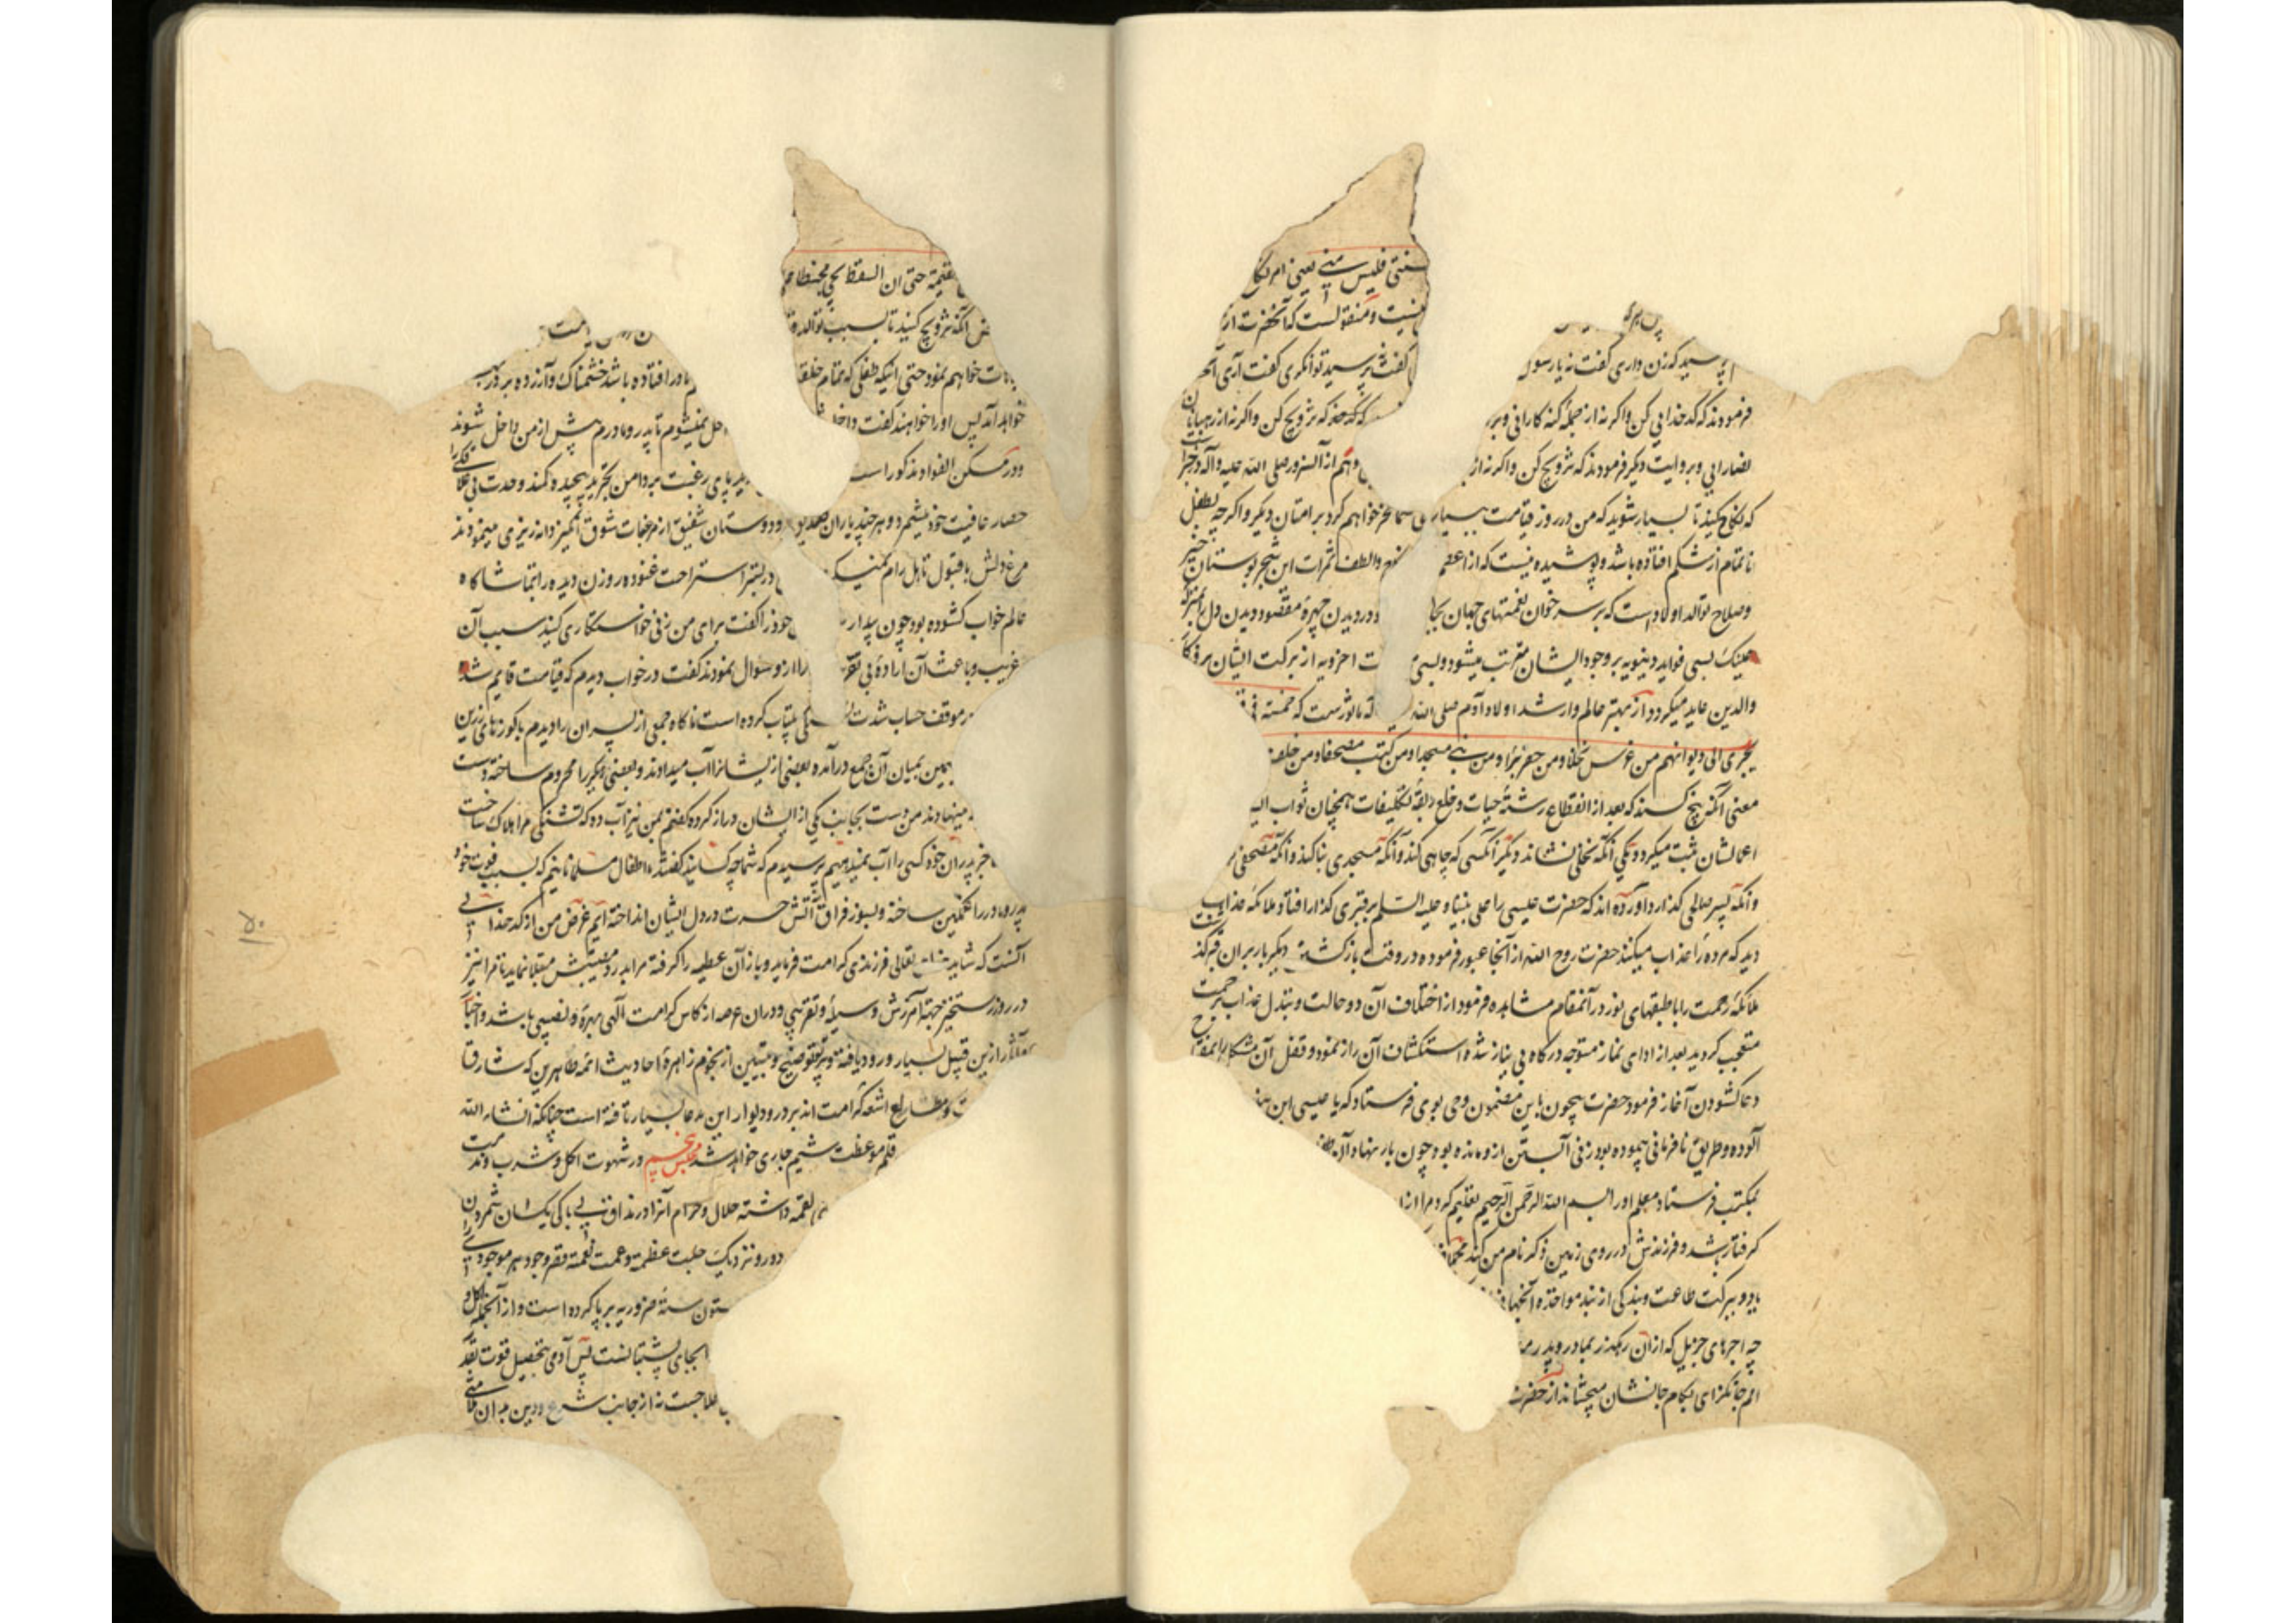 سنتی فلیس منی یعنی امر نکا
نیست و منقولست که آنحضرت از
پرسید که زن داری گفت نه یا رسول گفت پرسید توانگری گفت آری
فرمودند که کدخدایی کن و اگر نه از جمله گنه کارانی و بر که که تزویج کن و اگر نه از رهبانان
نصارایی و بروایت دیگر فرمودند که تزویج کن و اگر نه از و هم از آنسرور صلی الله علیه و آله
که نکاح کنید تا بسیار شوید که من در روز قیامت بسیار خواهم کرد بر امتان دیگر و اگر چه بطفل
ناتمام از شکم افتاده باشد و پوشیده نیست که از اعظم والطف ثمرات این شجر بوستان خیر
وصلاح توالد اولاد است که بر سر خوان نعمتهای جهان بجا و در دیدن چهره مقصود و دیدن دل را بمنزله
عینک بسی فواید دنیویه بر وجود ایشان مترتب میشود و بسی اخرویه از برکت ایشان بر
والدین عاید میگردد از مهتر عالم وارشد اولاد آدم صلی الله ماثورست که خمسة فی
یجری الی دیوانهم من غرس نخلا و من حفر بئرا و من بنی مسجدا و من کتب مصحفا و من خلف
معنی آنکه پنج کسند که بعد از انقطاع رشته حیات و خلع ربقه تکلیفات همچنان ثواب
اعمالشان ثبت میگردد یکی آنکه نخلی نشاند دیگر آنکسی که چاهی کند و آنکه مسجدی بنا کند و آنکه مصحفی
و آنکه پسر صالحی گذارد و آورده اند که حضرت عیسی را علی نبینا و علیه السلم بر قبری گذار افتاد ملائکه عذاب
دید که مرده را عذاب میکنند حضرت روح الله از آنجا عبور فرموده در وقت بازگشت دیگر بار بر ان قبر
ملائکه رحمت را با طبقهای نور در آنمقام مشاهده فرمود از اختلاف آن دو حالت و تبدل عذاب برحمت
متعجب گردید بعد از ادای نماز متوجه درگاه بی نیاز شده استکشاف آن راز نمود و قفل آن مشکل را بمفتاح
دعا گشودن آغاز فرمود حضرت بیچون باین مضمون وحی بوی فرستاد که یا عیسی این بنده
آلوده و طریق نافرمانی پیموده بود زنی آبستن از و مانده بود چون بار نهاد و آن
بمکتب فرستاد معلم او را بسم الله الرحمن الرحیم تعلیم کرد مرا از
گرفتار باشد و فرزندش در روی زمین ذکر نام من کند
یا دو ببرکت طاعت و بندگی از بند مواخذه آنجهانی
چه اجرهای جزیل که از آن رهگذر بمادر و پدر
غم جانگزای بکام جانشان میچشاند از حضرت
قیمة حتی ان السقط یجیء محبنطا
آنکه تزویج کنید تا بسبب توالد
مباهات خواهم نمود حتی اینکه طفلی که تمام خلقت مادر افتاده باشد خشمناک و آزرده بر در بهشت
خواهد آمد پس او را خواهند گفت داخل داخل نمیشوم تا پدر و مادرم پیش از من داخل شوند
و در مسکن الفواد مذکور است پای رغبت بر دامن تجرید پیچیده کمند وحدت
حصار عافیت خود میشمرد و هر چند یاران و دوستان شفیق از مرغبات شوق انگیز دانه ریزی مینمودند
مرغ دلش با قبول تاهل رام نمیگردید در بستر استراحت غنوده روزن دیده را بتماشاگاه
عالم خواب گشوده بود چون بیدار خود را گفت برای من زنی خواستگاری کنید سبب آن
غریب و باعث آن اراده را از و سوال نمودند گفت در خواب دیدم که قیامت قایم شده
در موقف حساب بیتاب کرده است ناگاه جمعی از پسران را دیدم با کوزهای زرین
سیمین بمیان آن جمع درآمده بعضی از ایشانرا آب میدادند و بعضی دیگر را محروم ساخته دست
مینهادند من دست بجانب یکی از ایشان دراز کرده گفتم بمن نیز آب ده که تشنگی مرا هلاک ساخت
بجز پدران خود کسی را آب نمیدهیم پرسیدم که شما چه کسانید گفتند اطفال مسلمانانیم که بسبب فوت خود
پدر و مادر را غمگین ساخته و بسوز فراق آتش حسرت در دل ایشان انداخته ایم غرض من از کدخدایی
آنست که شاید خدای تعالی فرزندی کرامت فرماید و باز آن عطیه را گرفته مرا بدرد مصیبتش مبتلا نماید تا مرا نیز
در روز رستخیز جهة آمرزش وسیله و تقریبی و در ان عرصه از کاس کرامت الهی بهره و نصیبی باشد و اخبار
و آثار از این قبیل بسیار ورود یافته و پرتو توضیح و تبیین از نجوم زاهره احادیث ائمه طاهرین که مشارق
و مطالع اشعه کرامت اند بر در و دیوار این مدعا بسیار تافته است چنانکه انشاء الله
قلم موعظت شیم جاری خواهد شد مجلس پنجم در شهوت اکل و شرب
لقمه داشته حلال و حرام آنرا در مذاق بیباکی یکسان شمردن
دور و نزدیک جلت عظمته و عمت نعمته قصر وجود هر موجودی را
ستون سته ضروریه بر پا کرده است و از آنجمله اکل و
بجای پشتیبانست پس آدمی بتحصیل قوت
علاجست نه از جانب شرع و دین بدان